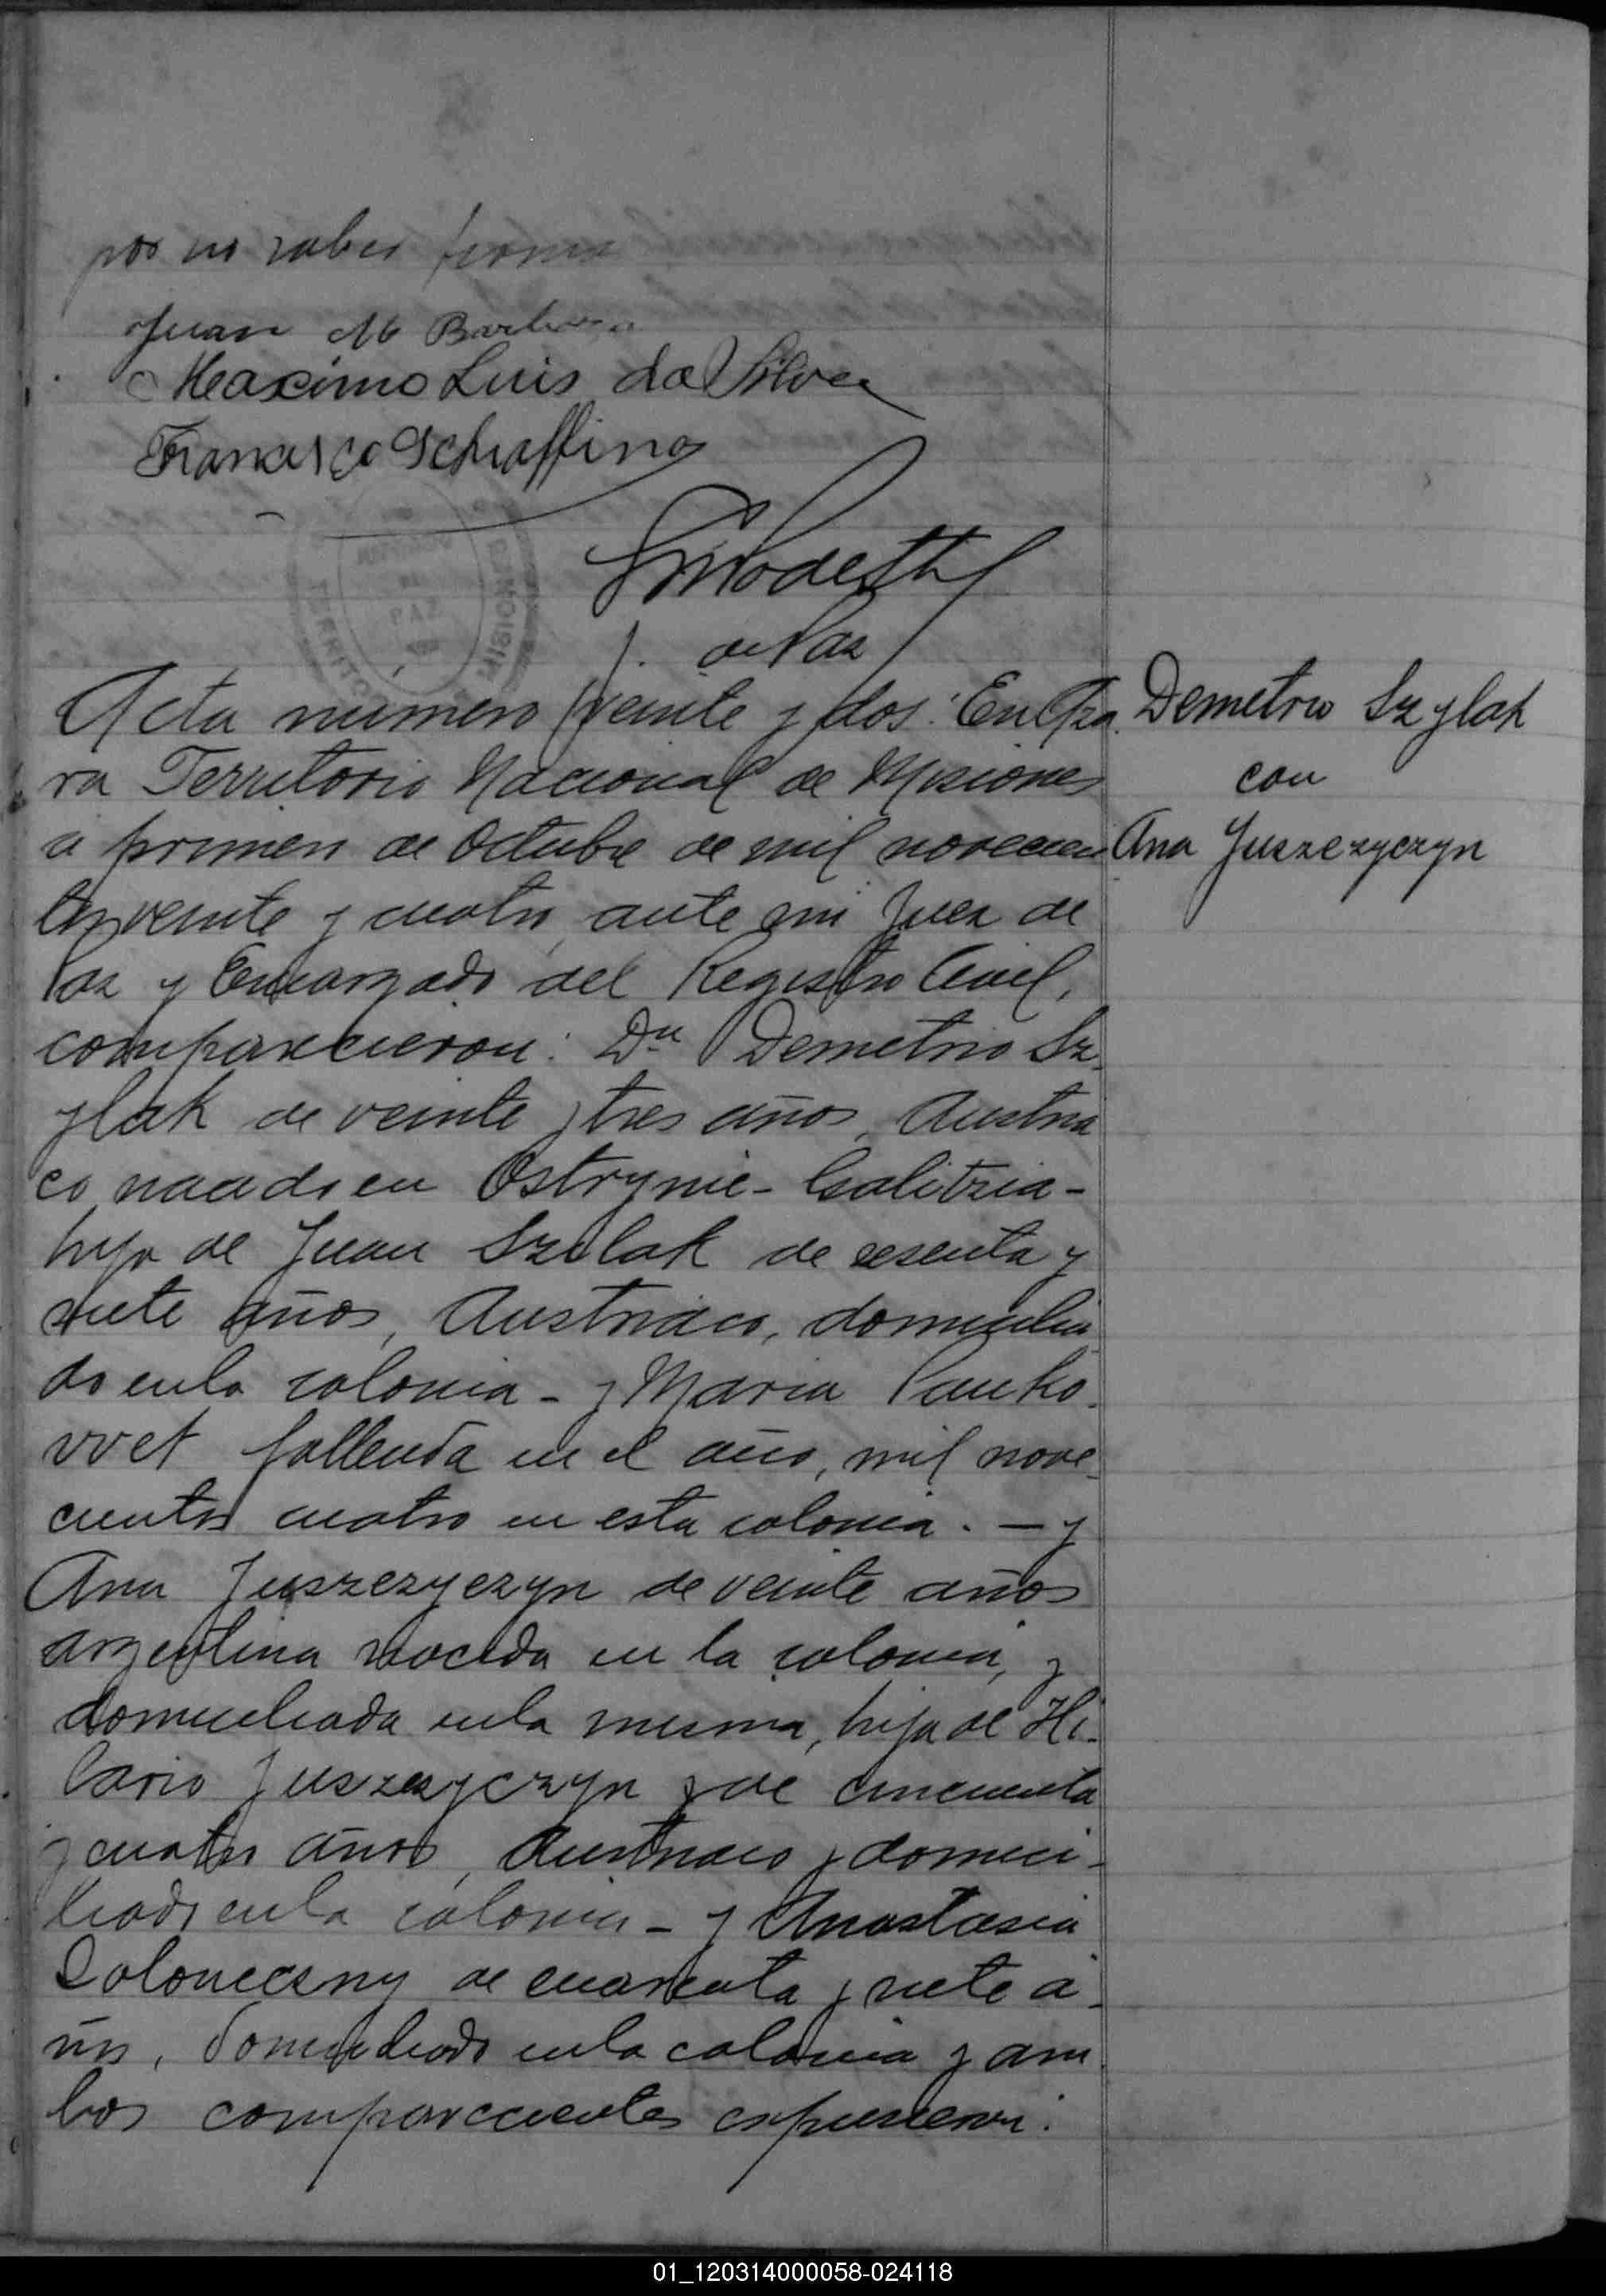 por no saber firma
Juan M Barboza
Maximo Luis da Silva
Francisco Schiaffino
J. de Paz
Acta número veinte y dos: En Aza
ra Territorio Nacional de Misiones
a primero de Octubre de mil novecien
tos veinte y cuatro, ante mi Juez de
Paz y Encargado del Registro Civil,
comparecieron: Dn Demetrio Sz
ylak de veinte y tres años, Austria
co nacido en Ostrynie - Galitzia -
hijo de Juan Szilak de sesenta y
siete años, Austriaco, domicilia
do en la colonia - y Maria Panko
vvet fallecida en el año, mil nove
cientos cuatro en esta colonia. - y
Ana Juszezyczyn de veinte años
argentina nacida en la colonia, y
domiciliada en la misma, hija de Hi-
lario Juszezyczyn y de cincuenta
y cuatro años, Austriaco y domici-
liado en la colonia - y Anastasia
de cuarenta y siete a-
ños, domiciliado en la colonia y am
bos comparecientes expusieron:
Demetrio Szylak
con
Ana Juszezyczyn
01_120314000058-024118